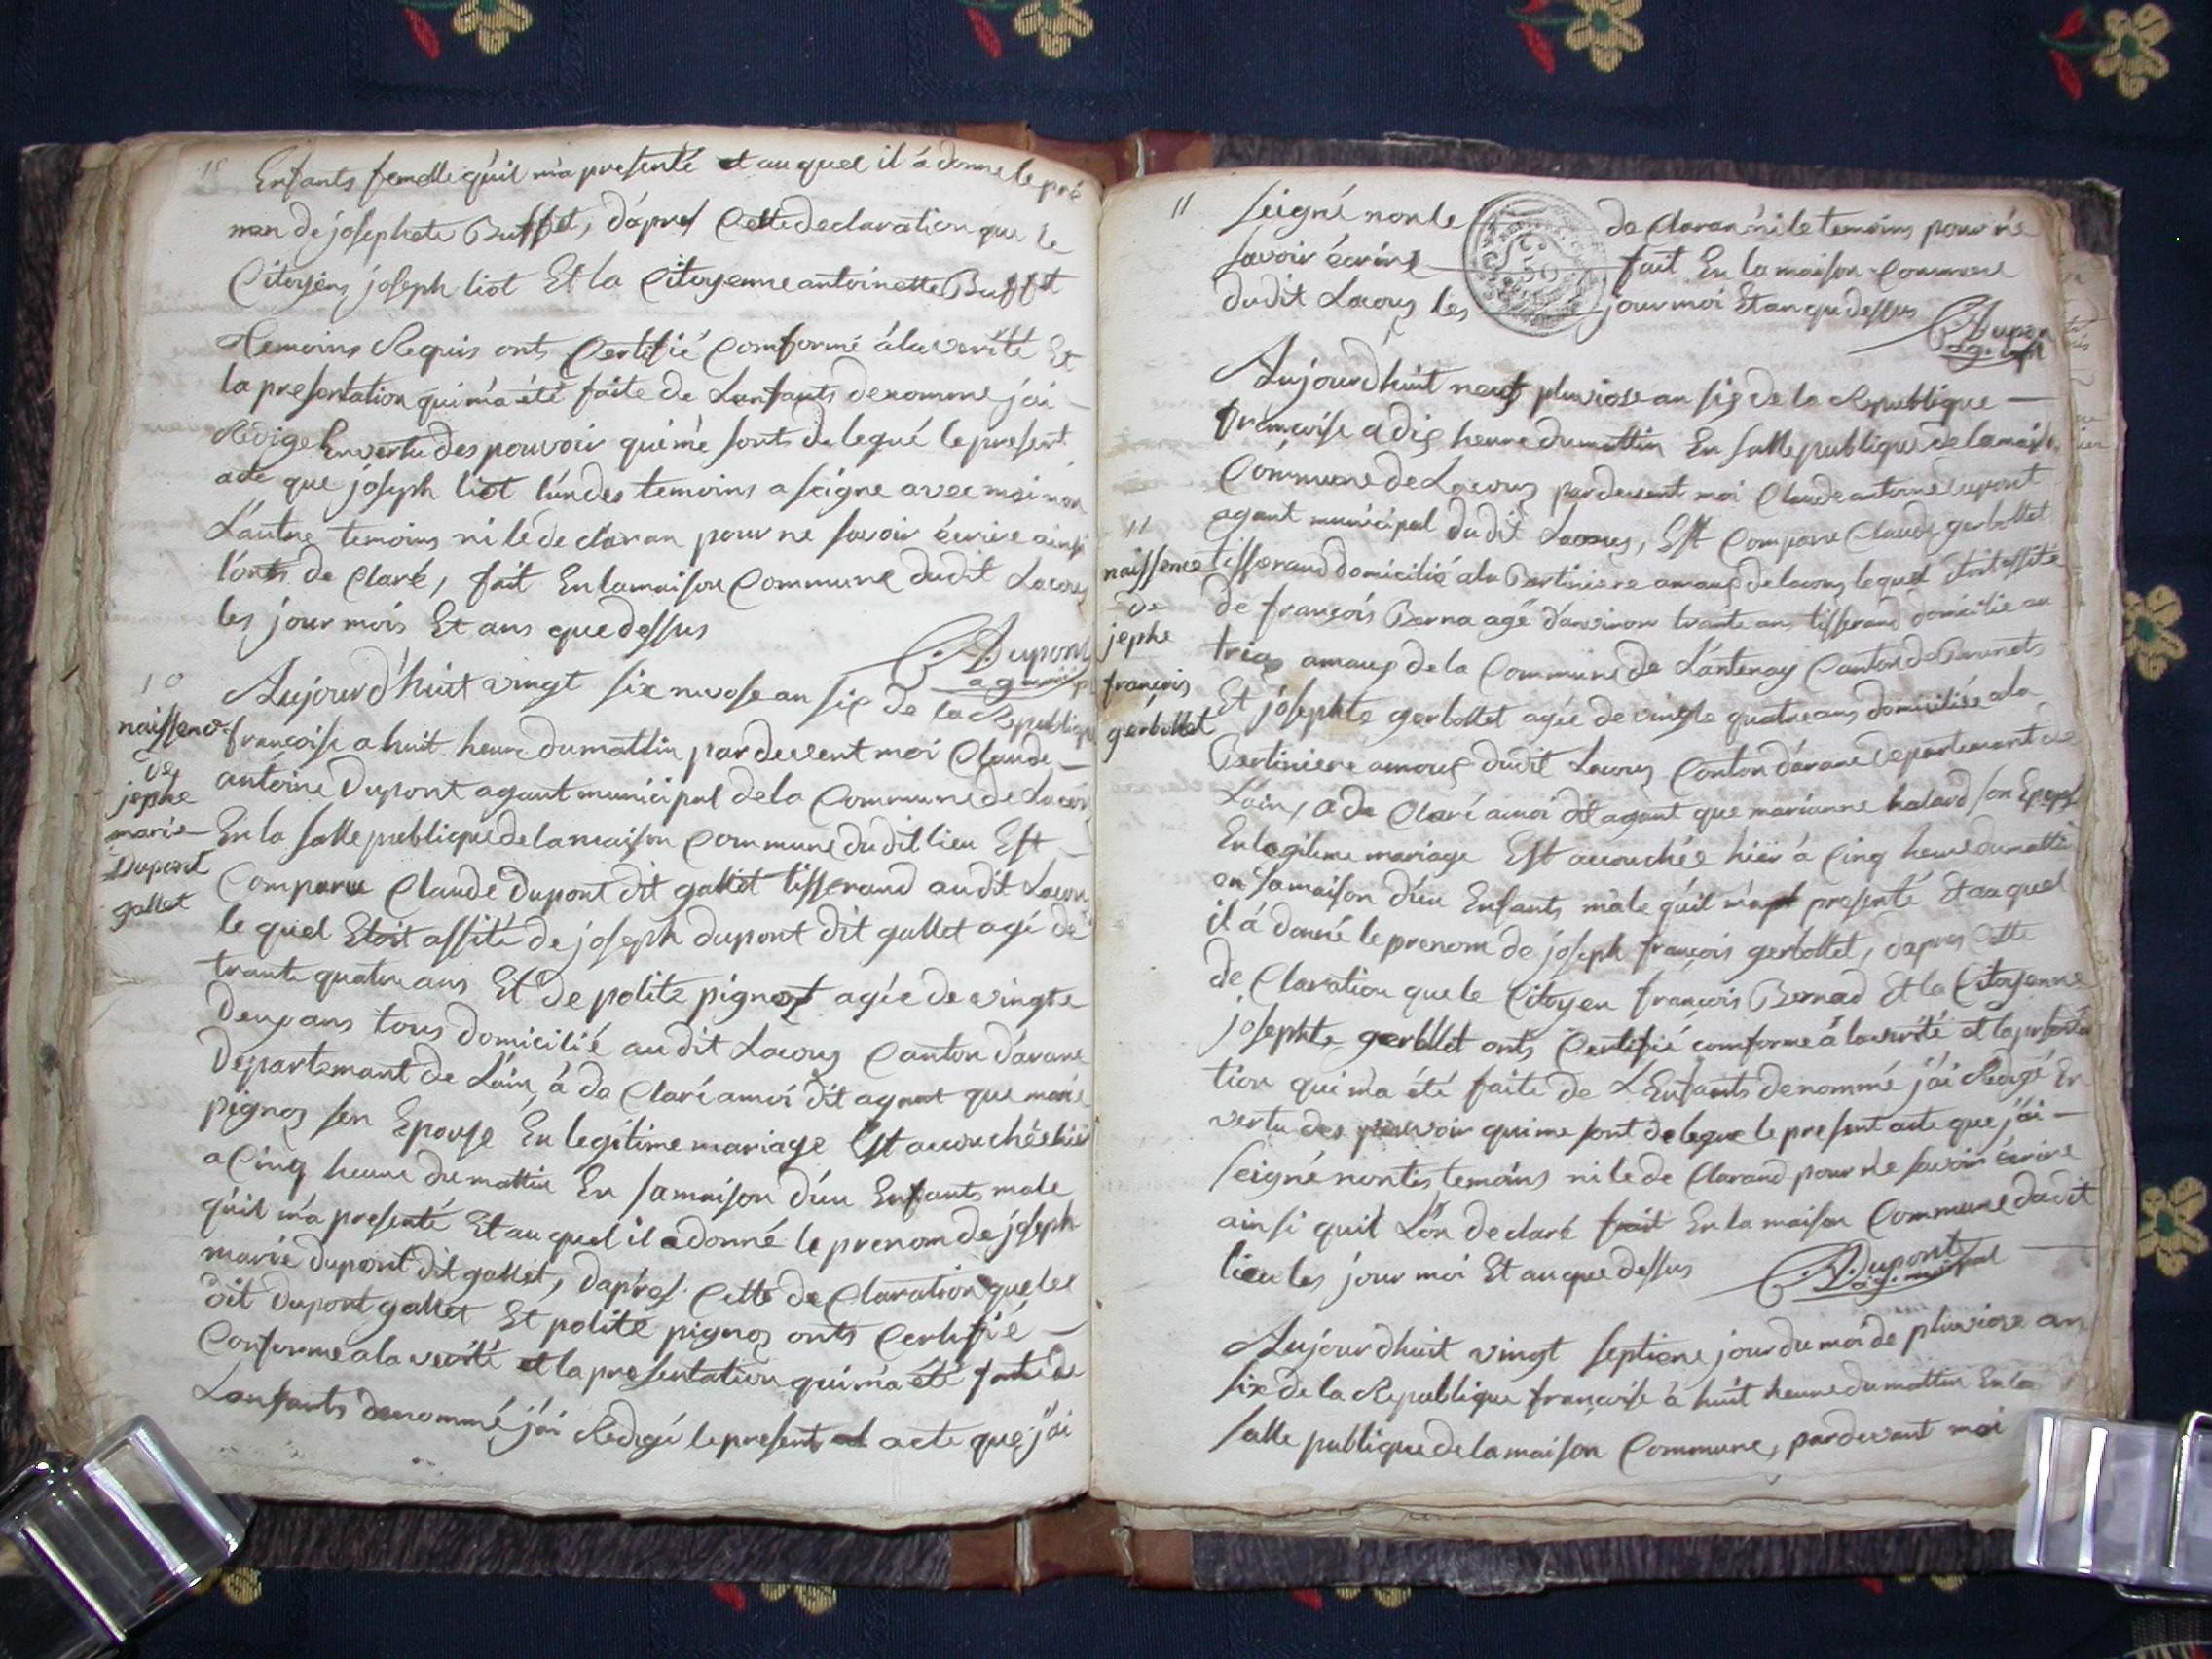 Enfants femelle quil ma presenté et au quel il á donne le pré
nom de josephete Buffet, dápres Cette declaration que le
Citoyens joseph liot Et la Citoyenne antoinette Buffet
temoins Requis onts Certifié Comformé á la verité Et
la presentation qui má été faite de Lenfants denomme jái
Redige En vertu des pouvoir qui mé sonts delegué le present
acte que jóseph liot lúndes temoins a seigne avec moi non
Láutre temoins ni le de claran pour ne savoir écrire ainsi
lónts de Claré, fait En la maison Commune dudit Lacoux
les jour mois Et ans que dessus
C. A. Dupont
ag. municipl
10
naissence
de
jephe
marie
Dupont
gallet
Aujourd'huit vingt six nivose an six de la Republique
françoise a huit heure du mattin par devent moi Claude
antoine Dupont agant municipal de la Commune de Lacoux
En la salle publique de la maison Commune du dit lieu Est
Comparue Claude Dupont dit gallet tisserand audit Lacoux
le quel Etoit assité de joseph dupont dit gallet agé de
trante quatre ans Et de polite pignoz agée de vingte
deux ans tous domicilié audit Lacoux Canton dárane
Departemant de Láin, á de Claré amoi dit agant que marie
pignoz son Epouse En legitime mariage Est accouchée hiér
a Cinq heure du mattin En sa maison díeu Enfants male
quil má presenté Et au quel il a donné le prenom de joseph
marie dupont dit gallet, dápres Cette de Claration que les
dit Dupont gallet Et polite pignoz onts Certifié
Conforme a la verité et la presentation qui má été faite de
Lenfants denommé jái Redigé le present acte que jái
11
seigné non le de claran ni le temoins pour né
savoir écrire fait En la maison Commune
du dit Lacoux les jour moi Et an que dessus
C. A. Dupon
ag. mpl
11
naissence
de
jephe
françois
gerbollet
Aujourdhuit neuf pluviose an six de la Republique
françoise a dix heure du mattin En salle publique de la maison
Commune de Lacoux par devent moi Claude antoine dupont
agant municipal du dit Lacoux, Est Comparu Claude gerbollet
tisserand domicilié á la Bertiniere amaux de lacoux le quel étoit assité
de françois Berna agé dánviron trante ans tisserand domicilié au
amaux de la Commune de Lántenay Canton de Brunets
Et jósephte gerbollet agée de vingte quatre ans domiciliée a la
Bertiniere amoux dudit Lacoux Canton dárane departemant de
Láin, a de Claré a moi dit agant que marianne balard son Epouse
En legitime mariage Est accouchée hiér á Cinq heure du mattin
en sa maison díeu Enfants mále quíl má presenté Et au quel
il á donné le prenom de joseph françois gerbollet, dapres Cette
de Claration que le Citoyen françois Bernad Et la Citoyenne
josephte gerbllet onts Certifié comforme á la verité et la presenta
tion qui má été faite de LEnfants denommé jái Redigé En
vertu des pouvoir qui me sont delegue le present acte que jái
seigné non tes temoins ni le de Clarand pour ne savoir écrire
ainsi quit Lón declaré fait En la maison Commune dudit
lieu les jour moi Et an que dessus
C. A. Dupont
ag. municipal
Aujourdhuit vingt septiene jour du moi de pluviose an
six de la Republique françoise á huit heure du mattin En la
salle publique de la maison Commune, par devant moi